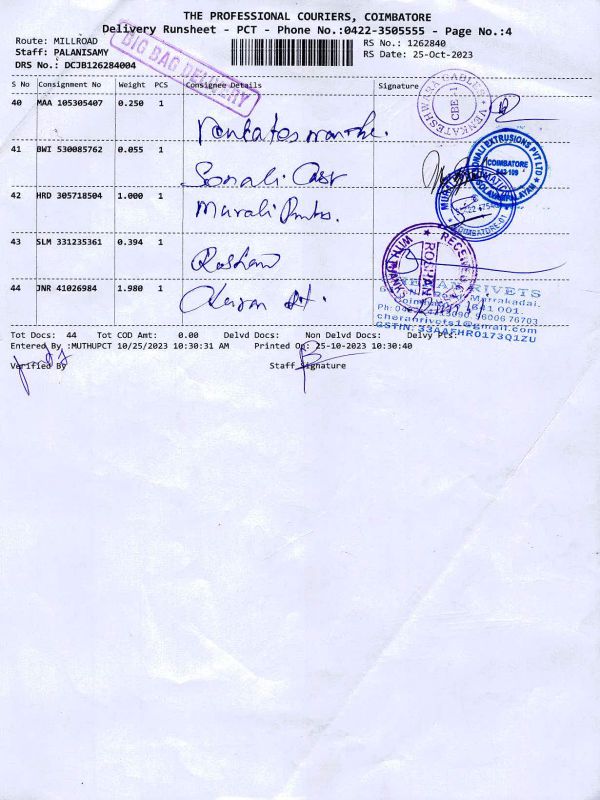 THE PROFESSIONAL COURIERS, COIMBATORE
Delivery Runsheet - PCT - Phone No.:0422-3505555 - Page No.:4
Route: MILLROAD
RS No.: 1262840
Staff: PALANISAMY
RS Date: 25-Oct-2023
DRS No.: DCJB126284004
BIG BAG DELIVERY
S No Consignment No Weight PCS Consignee Details Signature
40 MAA 105305407 0.250 1
VENKATESHWARA CABLES CBE - 1
41 BWI 530085762 0.055 1 Sonali
EXTRUSIONS PVT LTD COIMBATORE 641 109
42 HRD 305718504 1.000 1 Murali
COIMBATORE-01
43 SLM 331235361 0.394 1 Roshan
RECEIVED ROSHAN
44 JNR 41026984 1.980 1
RIVETS
Marrakadai.
641 001.
98006 76703
cheranrivets1@gmail.com
GSTIN: 33AAFHR0173Q1ZU
Tot Docs: 44 Tot COD Amt: 0.00 Delvd Docs: Non Delvd Docs: Delvy Pts:
Entered By :MUTHUPCT 10/25/2023 10:30:31 AM Printed On: 25-10-2023 10:30:40
Verified By Staff Signature